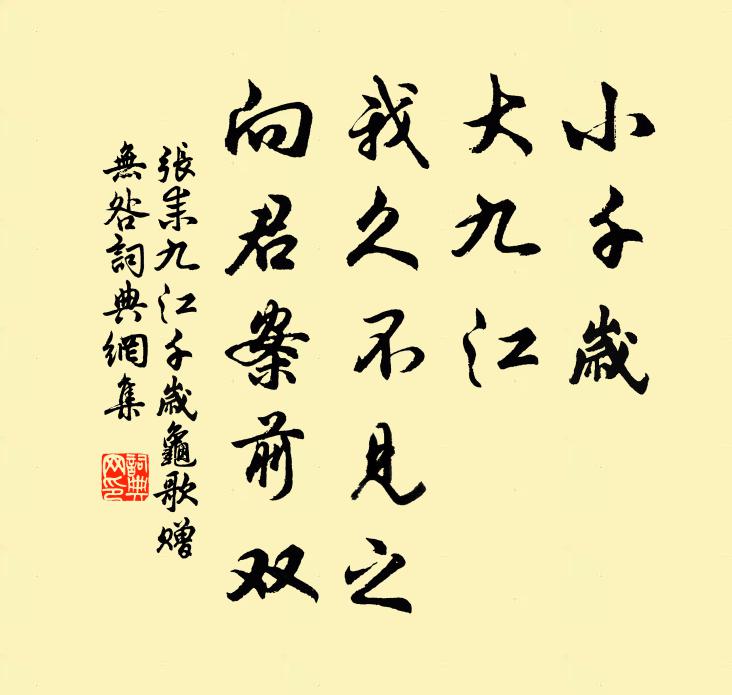 小千歲
大九江
我久不見之
向君案前双
張耒九江千歲龜歌贈
無咎詞典網集
詞典网印